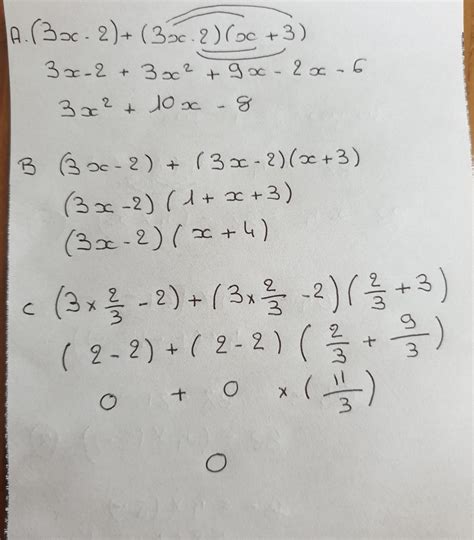 A. (3x - 2) + (3x - 2)(x + 3)
3x - 2 + 3x² + 9x - 2x - 6
3x² + 10x - 8
B (3x - 2) + (3x - 2)(x + 3)
(3x - 2)(1 + x + 3)
(3x - 2)(x + 4)
C (3 × 2/3 - 2) + (3 × 2/3 - 2)(2/3 + 3)
(2 - 2) + (2 - 2)(2/3 + 9/3)
0 + 0 × (11/3)
0